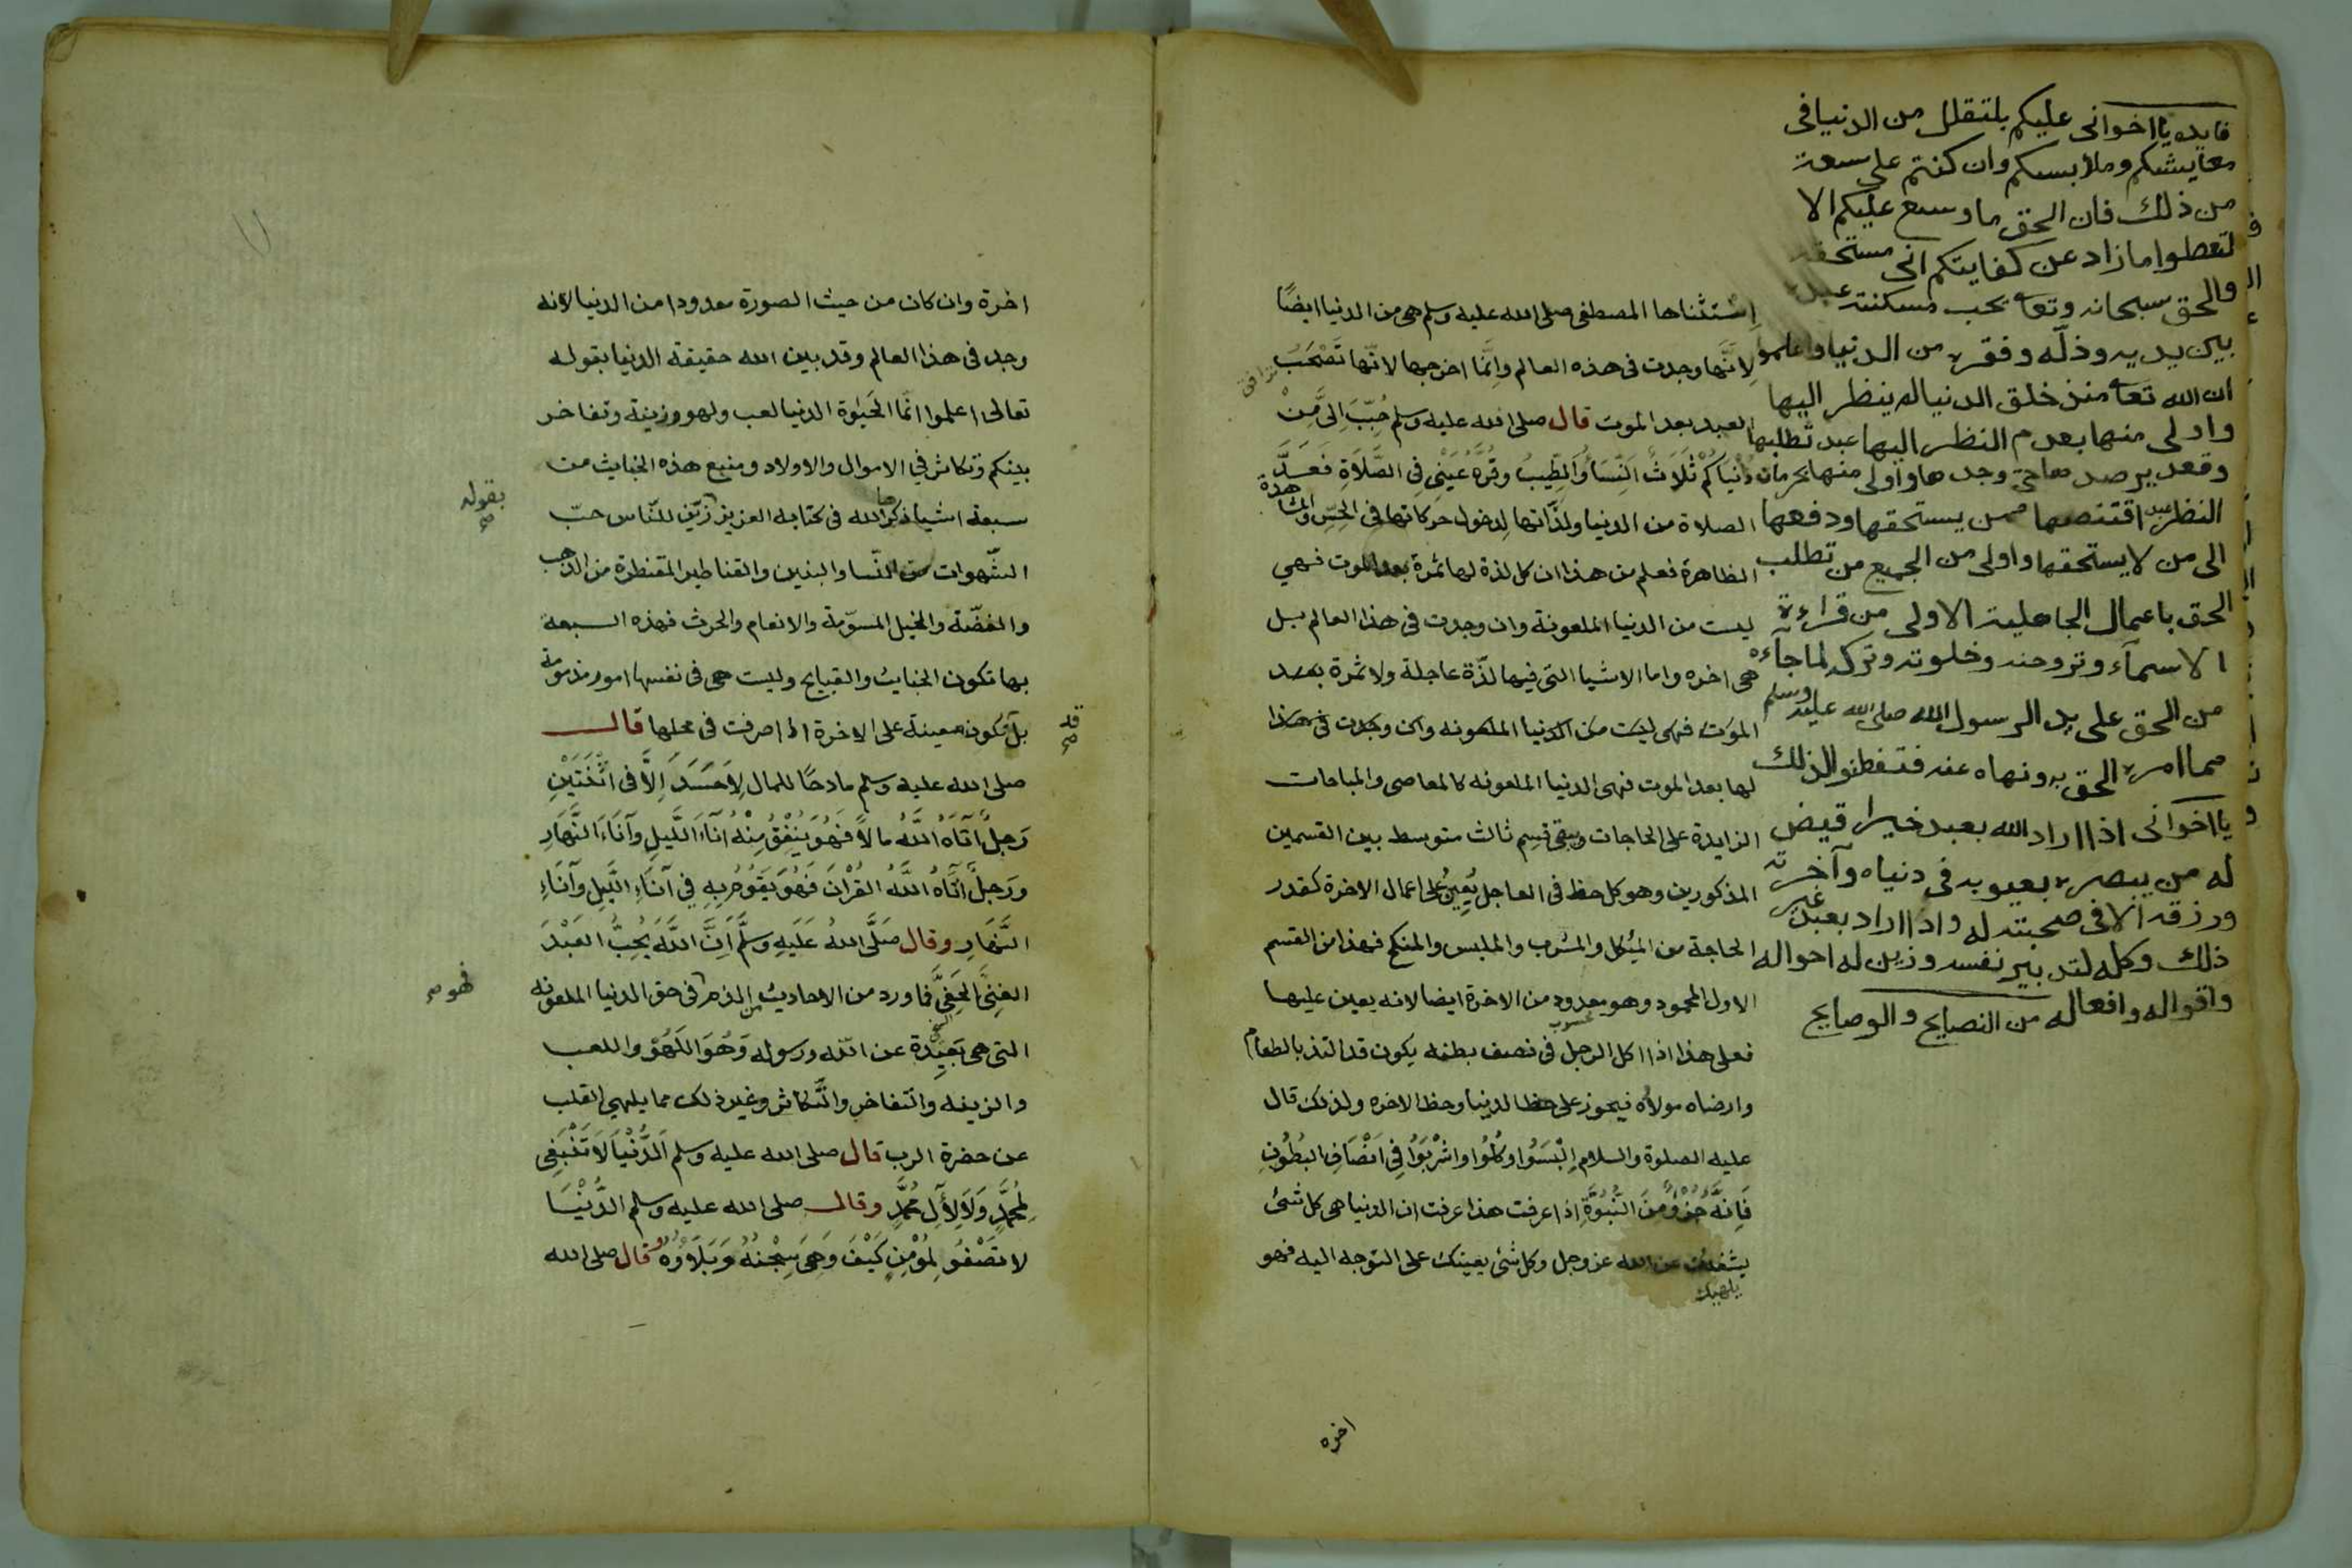 استثناها المصطفى صلى الله عليه وسلم هى من الدنيا ايضًا
لانّها وجدت فى هذه العالم وانّما اخرجها لانّها تصْحَبُ
ترافق
العبد بعد الموت قال صلى الله عليه وسلم حُبِّبَ اِلىَّ مِنْ
دُنْيَاكُمْ ثَلَاثٌ اَلنِّسَاُ وَالطِّيبُ وقُرَّةُ عَيْنِى فِى الصَّلَاةِ فَعَدَّ
الصلاة من الدنيا ولذّاتها لدخول حركاتها فى الحِسّ والمشاهدة
الظاهرة فعلم من هذا ان كل لذة لها ثمرة بعد الموت فهي
ليست من الدنيا الملعونة وان وجدت فى هذا العالم بل
هى اخره واما الاشيا التى فيها لذّة عاجلة ولا ثمرة بعد
الموت فهى ليست من الدنيا الملعونه وان وجدت فى هذا
لها بعد الموت فهى الدنيا الملعونه كالمعاصى والمباحات
الزايدة على الحاجات وبقى قسم ثالث متوسط بين القسمين
المذكورين وهو كل حظ فى العاجل يُعِينُ على اعمال الاخرة كقدر
الحاجة من الميُكل والمشرب والملبس والمنكح فهذا من القسم
الاول المحمود وهو معدود من الاخرة ايضا لانه يعين عليها
محسوب
فعلى هذا اذا اكل الرجل فى نصف بطنه يكون قد التذ بالطعام
وارضاه مولاه فيحوز على حظ الدنيا وحظ الاخره ولذلك قال
عليه الصلوة والسلام اِلْبَسُوا وكُلُوا واشْرَبُوا فِى اَنْصَافِ البُطُونِ
فَاِنَّهُ جُزْؤٌ مِنَ النُّبُوَّةِ اذا عرفت هذا عرفت ان الدنيا هى كل شئ
يشغلك عن الله عز وجل وكل شئ يعينك على التوجه اليه فهو
يلهيك
اخره
فايده يا اخوانى عليكم بلتقلل من الدنيا فى
معايشكم وملابسكم وان كنتم على سعة
من ذلك فان الحق ما وسع عليكم الا
لتعطوا ما زاد عن كفايتكم الى مستحقه
والحق سبحانه وتعا يحب مسكنة عبده
بين يديه وذلّه وفقره من الدنيا واعلموا
ان الله تعا منذ خلق الدنيا لم ينظر اليها
واولى منها بعدم النظر اليها عبد تطلبها
وقعد يرصدها حتى وجدها واولى منها بحرمان
النظر عبد اقتنصها ممن يستحقها ودفعها
الى من لا يستحقها واولى من الجميع من تطلب
الحق باعمال الجاهلية الاولى من قراءة
الاسمآء وتروحنه وخلوته وتركه لما جآءه
من الحق على يد الرسول الله صلى الله عليه وسلم
مما امره الحق به ونهاه عنه فتفطنوا لذلك
يا اخوانى اذا اراد الله بعبد خيرا قيض
له من يبصره بعيوبه فى دنياه وآخرته
ورزقه الا فى صحبته له واذا اراد بعبد غير
ذلك وكله لتدبير نفسه وزين له احواله
واقواله وافعاله من النصايح والوصايح
اخرة وان كان من حيث الصورة معدودا من الدنيا لانه
وجد فى هذا العالم وقد بين الله حقيقة الدنيا بقوله
تعالى اعلموا انّما الحَيٰوة الدنيا لعب ولهو وزينة وتفاخر
بينكم وتكاثر في الاموال والاولاد ومنبع هذه الخبايث من
سبعة اشيا ذكرها الله فى كتابه العزيز زيّن للنّاس حبّ
بقوله صح
الشّهوات من النّسا والبنين والقناطير المقنطرة من الذهب
والفضّة والخيل المسوّمة والانعام والحرث فهذه السبعة
بها تكون الخبايث والقبايح وليست هى فى نفسها امور مذمومة
بل تكون معينة على الاخرة اذا صرفت فى محلها قال
قد صح
صلى الله عليه وسلم مادحًا للمال لاَ حَسَدَ اِلاَّ فى اثْنَتَيْنِ
رَجِلٌ اَتَاهُ اللَّهُ مالاً فَهُوَ يُنْفِقُ مِنْهُ اَنآءَ اللَّيلِ وآنَاءَ النَّهَارِ
ورَجِلٌ اَتَاهُ اللَّهُ القُرْآنَ فَهُوَ يَقُومُ بِهِ فِى آنَآءِ اللَّيلِ وآنَاءِ
النَّهَارِ وقال صَلَّى اللهُ عَلَيهِ وسلَّم اِنَّ اللَّهَ يُحِبُّ العَبْدَ
الغَنِىَّ الحَفِىَّ فما ورد من الاحاديث من الذم فى حق الدنيا الملعونه
فهو صح
التى هى بَعِيدة عن الله ورسوله وَهُوَ اللَهْو واللعب
والزينه والتفاخر والتَّكاثر وغير ذلك مما يلهي القلب
عن حضرة الرب قال صلى الله عليه وسلم اَلدُّنْيَا لَا تَنْبَغِى
لِمُحَمَّدٍ وَلَا لِأَلِ مُحَمَّدٍ وقال صلى الله عليه وسلم الدُّنْيَا
لا تَصْفُو لِمُؤْمِنٍ كَيْفَ وَهِىَ سِجْنُهُ وَبَلَاؤُهُ وقال صلى الله